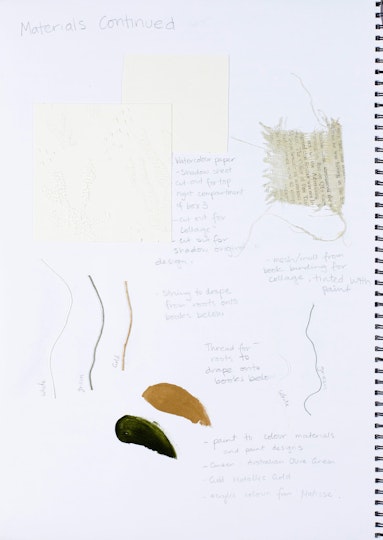 Materials Continued
Watercolour paper
- Shadow sheet
cut out for top
right compartment
of box 5
- cut out for
collage.
- cut out for
shadow
design.
- mesh/mull from
book binding for
collage. tinted with
paint
- String to drape
from roots onto
books below
White
Green
Gold
Thread for
roots to
drape onto
books below
White
- paint to colour materials
and paint designs
- Green Australian Olive Green
- Gold Metallic Gold
- Acrylic colour